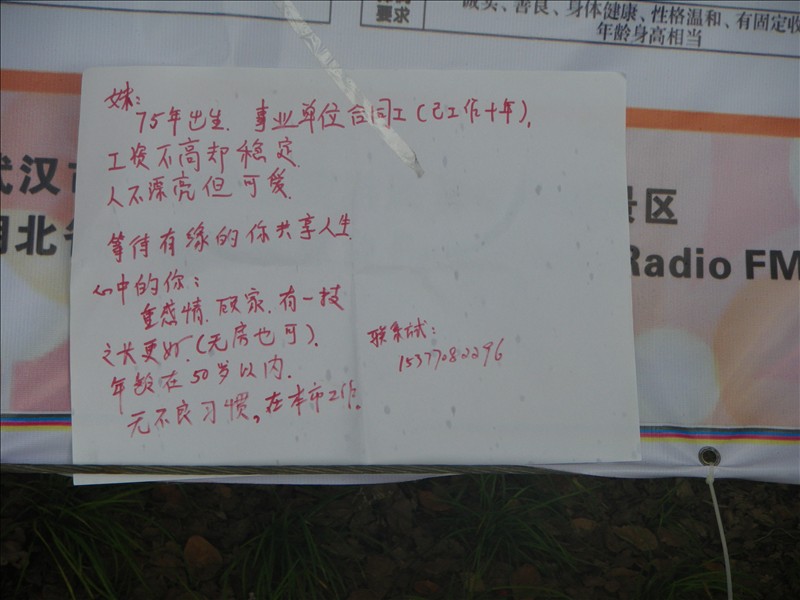 诚实、善良、身体健康、性格温和、有固定收
要求
年龄身高相当
妹:
75年出生. 事业单位合同工(已工作十年),
工资不高却稳定.
人不漂亮但可爱.
等待有缘的你共享人生.
心中的你:
重感情.顾家.有一技
之长更好.(无房也可).
年龄在50岁以内.
无不良习惯,在本市工作.
联系方式:
15377082296
武汉市
景区
湖北省
Radio FM